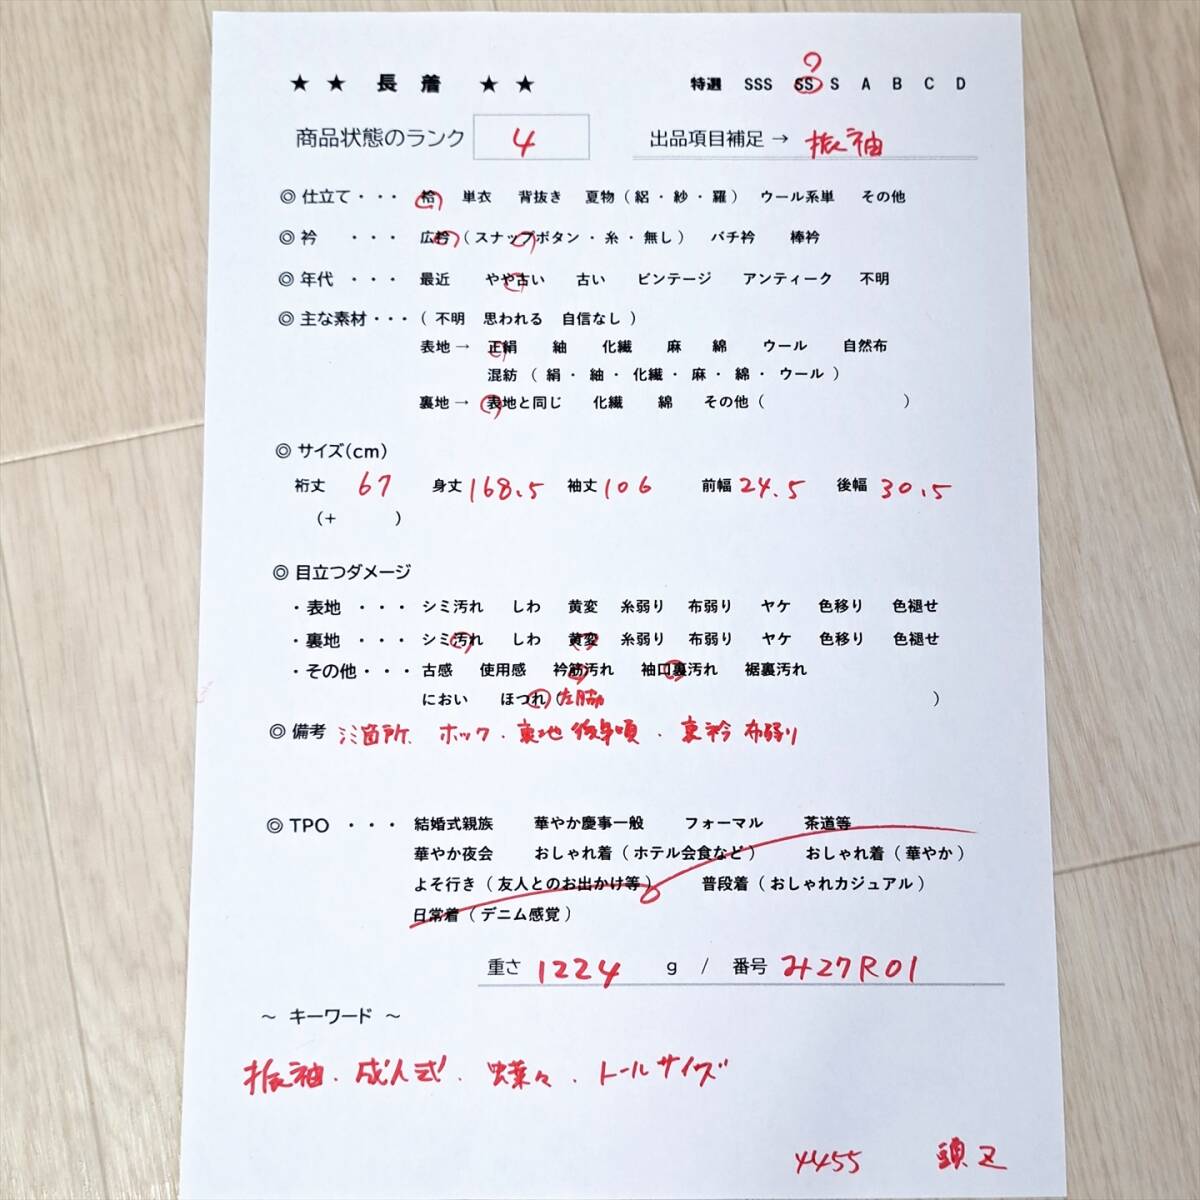 ★ ★ 長 着 ★ ★ 特選 SSS SS S A B C D
商品状態のランク 4 出品項目補足 → 振袖
◎ 仕立て ・・・ 袷 単衣 背抜き 夏物 ( 絽 ・ 紗 ・ 羅 ) ウール系単 その他
◎ 衿 ・・・ 広衿 ( スナップボタン ・ 糸 ・ 無し ) バチ衿 棒衿
◎ 年代 ・・・ 最近 やや古い 古い ビンテージ アンティーク 不明
◎ 主な素材 ・・・ ( 不明 思われる 自信なし )
表地 → 正絹 紬 化繊 麻 綿 ウール 自然布
混紡 ( 絹 ・ 紬 ・ 化繊 ・ 麻 ・ 綿 ・ ウール )
裏地 → 表地と同じ 化繊 綿 その他 ( )
◎ サイズ(cm)
裄丈 67 身丈 168.5 袖丈 106 前幅 24.5 後幅 30.5
(+ )
◎ 目立つダメージ
・ 表地 ・・・ シミ汚れ しわ 黄変 糸弱り 布弱り ヤケ 色移り 色褪せ
・ 裏地 ・・・ シミ汚れ しわ 黄変 糸弱り 布弱り ヤケ 色移り 色褪せ
・ その他 ・・・ 古感 使用感 衿筋汚れ 袖口裏汚れ 裾裏汚れ
におい ほつれ ( 左脇 )
◎ 備考 シミ箇所、ホック・裏地 後身頃・裏衿 布弱り
◎ TPO ・・・ 結婚式親族 華やか慶事一般 フォーマル 茶道等
華やか夜会 おしゃれ着 ( ホテル会食など ) おしゃれ着 ( 華やか )
よそ行き ( 友人とのお出かけ等 ) 普段着 ( おしゃれカジュアル )
日常着 ( デニム感覚 )
重さ 1224 g / 番号 み27R01
～ キーワード ～
振袖・成人式・蝶々・トールサイズ
4455